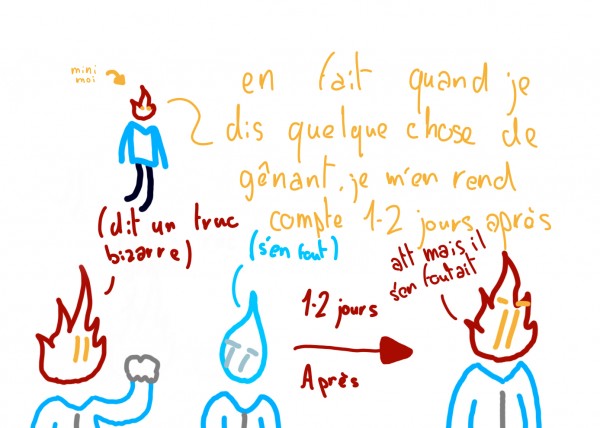 mini
moi
en fait quand je
dis quelque chose de
gênant, je m'en rend
compte 1-2 jours après
(dit un truc
bizarre)
(s'en fout)
1-2 jours
Après
att mais il
s'en foutait